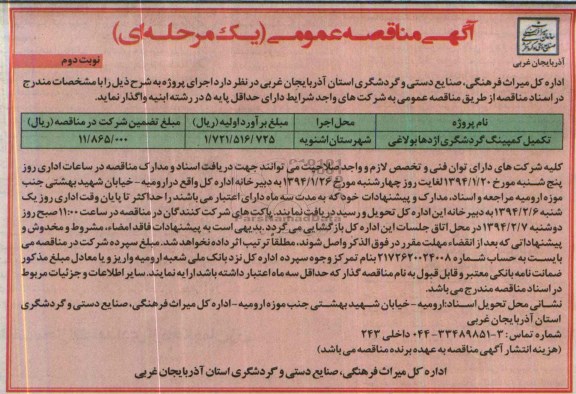 آگهی مناقصه عمومی (یک مرحله‌ای)
آذربایجان غربی
نوبت دوم
اداره کل میراث فرهنگی، صنایع دستی و گردشگری استان آذربایجان غربی در نظر دارد اجرای پروژه به شرح ذیل را با مشخصات مندرج
در اسناد مناقصه از طریق مناقصه عمومی به شرکت های واجد شرایط دارای حداقل پایه ۵ در رشته ابنیه واگذار نماید.
نام پروژه محل اجرا مبلغ برآورد اولیه (ریال) مبلغ تضمین شرکت در مناقصه (ریال)
تکمیل کمپینگ گردشگری اژدها بولاغی شهرستان اشنویه ۱/۷۲۱/۵۱۶/۷۲۵ ۱۱/۸۶۵/۰۰۰
کلیه شرکت های دارای توان فنی و تخصص لازم و واجد صلاحیت می توانند جهت دریافت اسناد و مدارک مناقصه در ساعات اداری روز
پنج شنبه مورخ ۱۳۹۴/۱/۲۰ لغایت روز چهارشنبه مورخ ۱۳۹۴/۱/۲۶ به دبیرخانه اداره کل واقع در ارومیه - خیابان شهید بهشتی جنب
موزه ارومیه مراجعه و اسناد، مدارک و پیشنهادات خود که به مدت سه ماه دارای اعتبار می باشند را حداکثر تا پایان وقت اداری روز یک
شنبه ۱۳۹۴/۲/۶ به دبیرخانه این اداره کل تحویل و رسید دریافت نمایند. پاکت های شرکت کنندگان در مناقصه در ساعت ۱۱:۰۰ صبح روز
دوشنبه ۱۳۹۴/۲/۷ در محل اتاق جلسات این اداره کل بازگشایی می گردد. بدیهی است به پیشنهادات فاقد امضاء، مشروط و مخدوش و
پیشنهاداتی که بعد از انقضاء مهلت مقرر در فوق الذکر واصل شوند، مطلقا ترتیب اثر داده نخواهد شد. مبلغ سپرده شرکت در مناقصه می
بایست به حساب شماره ۲۱۷۲۶۲۰۰۲۴۰۰۸ بنام تمرکز وجوه سپرده اداره کل نزد بانک ملی شعبه ارومیه واریز و یا معادل مبلغ مذکور
ضمانت نامه بانکی معتبر و قابل قبول به نام مناقصه گذار که حداقل سه ماه اعتبار داشته باشد ارایه نمایند. سایر اطلاعات و جزئیات مربوط
در اسناد مناقصه مندرج می باشد.
نشانی محل تحویل اسناد: ارومیه - خیابان شهید بهشتی جنب موزه ارومیه - اداره کل میراث فرهنگی، صنایع دستی و گردشگری
استان آذربایجان غربی
شماره تماس: ۳-۳۳۴۸۹۸۵۱-۰۴۴ داخلی ۲۴۳
(هزینه انتشار آگهی مناقصه به عهده برنده مناقصه می باشد)
اداره کل میراث فرهنگی، صنایع دستی و گردشگری استان آذربایجان غربی